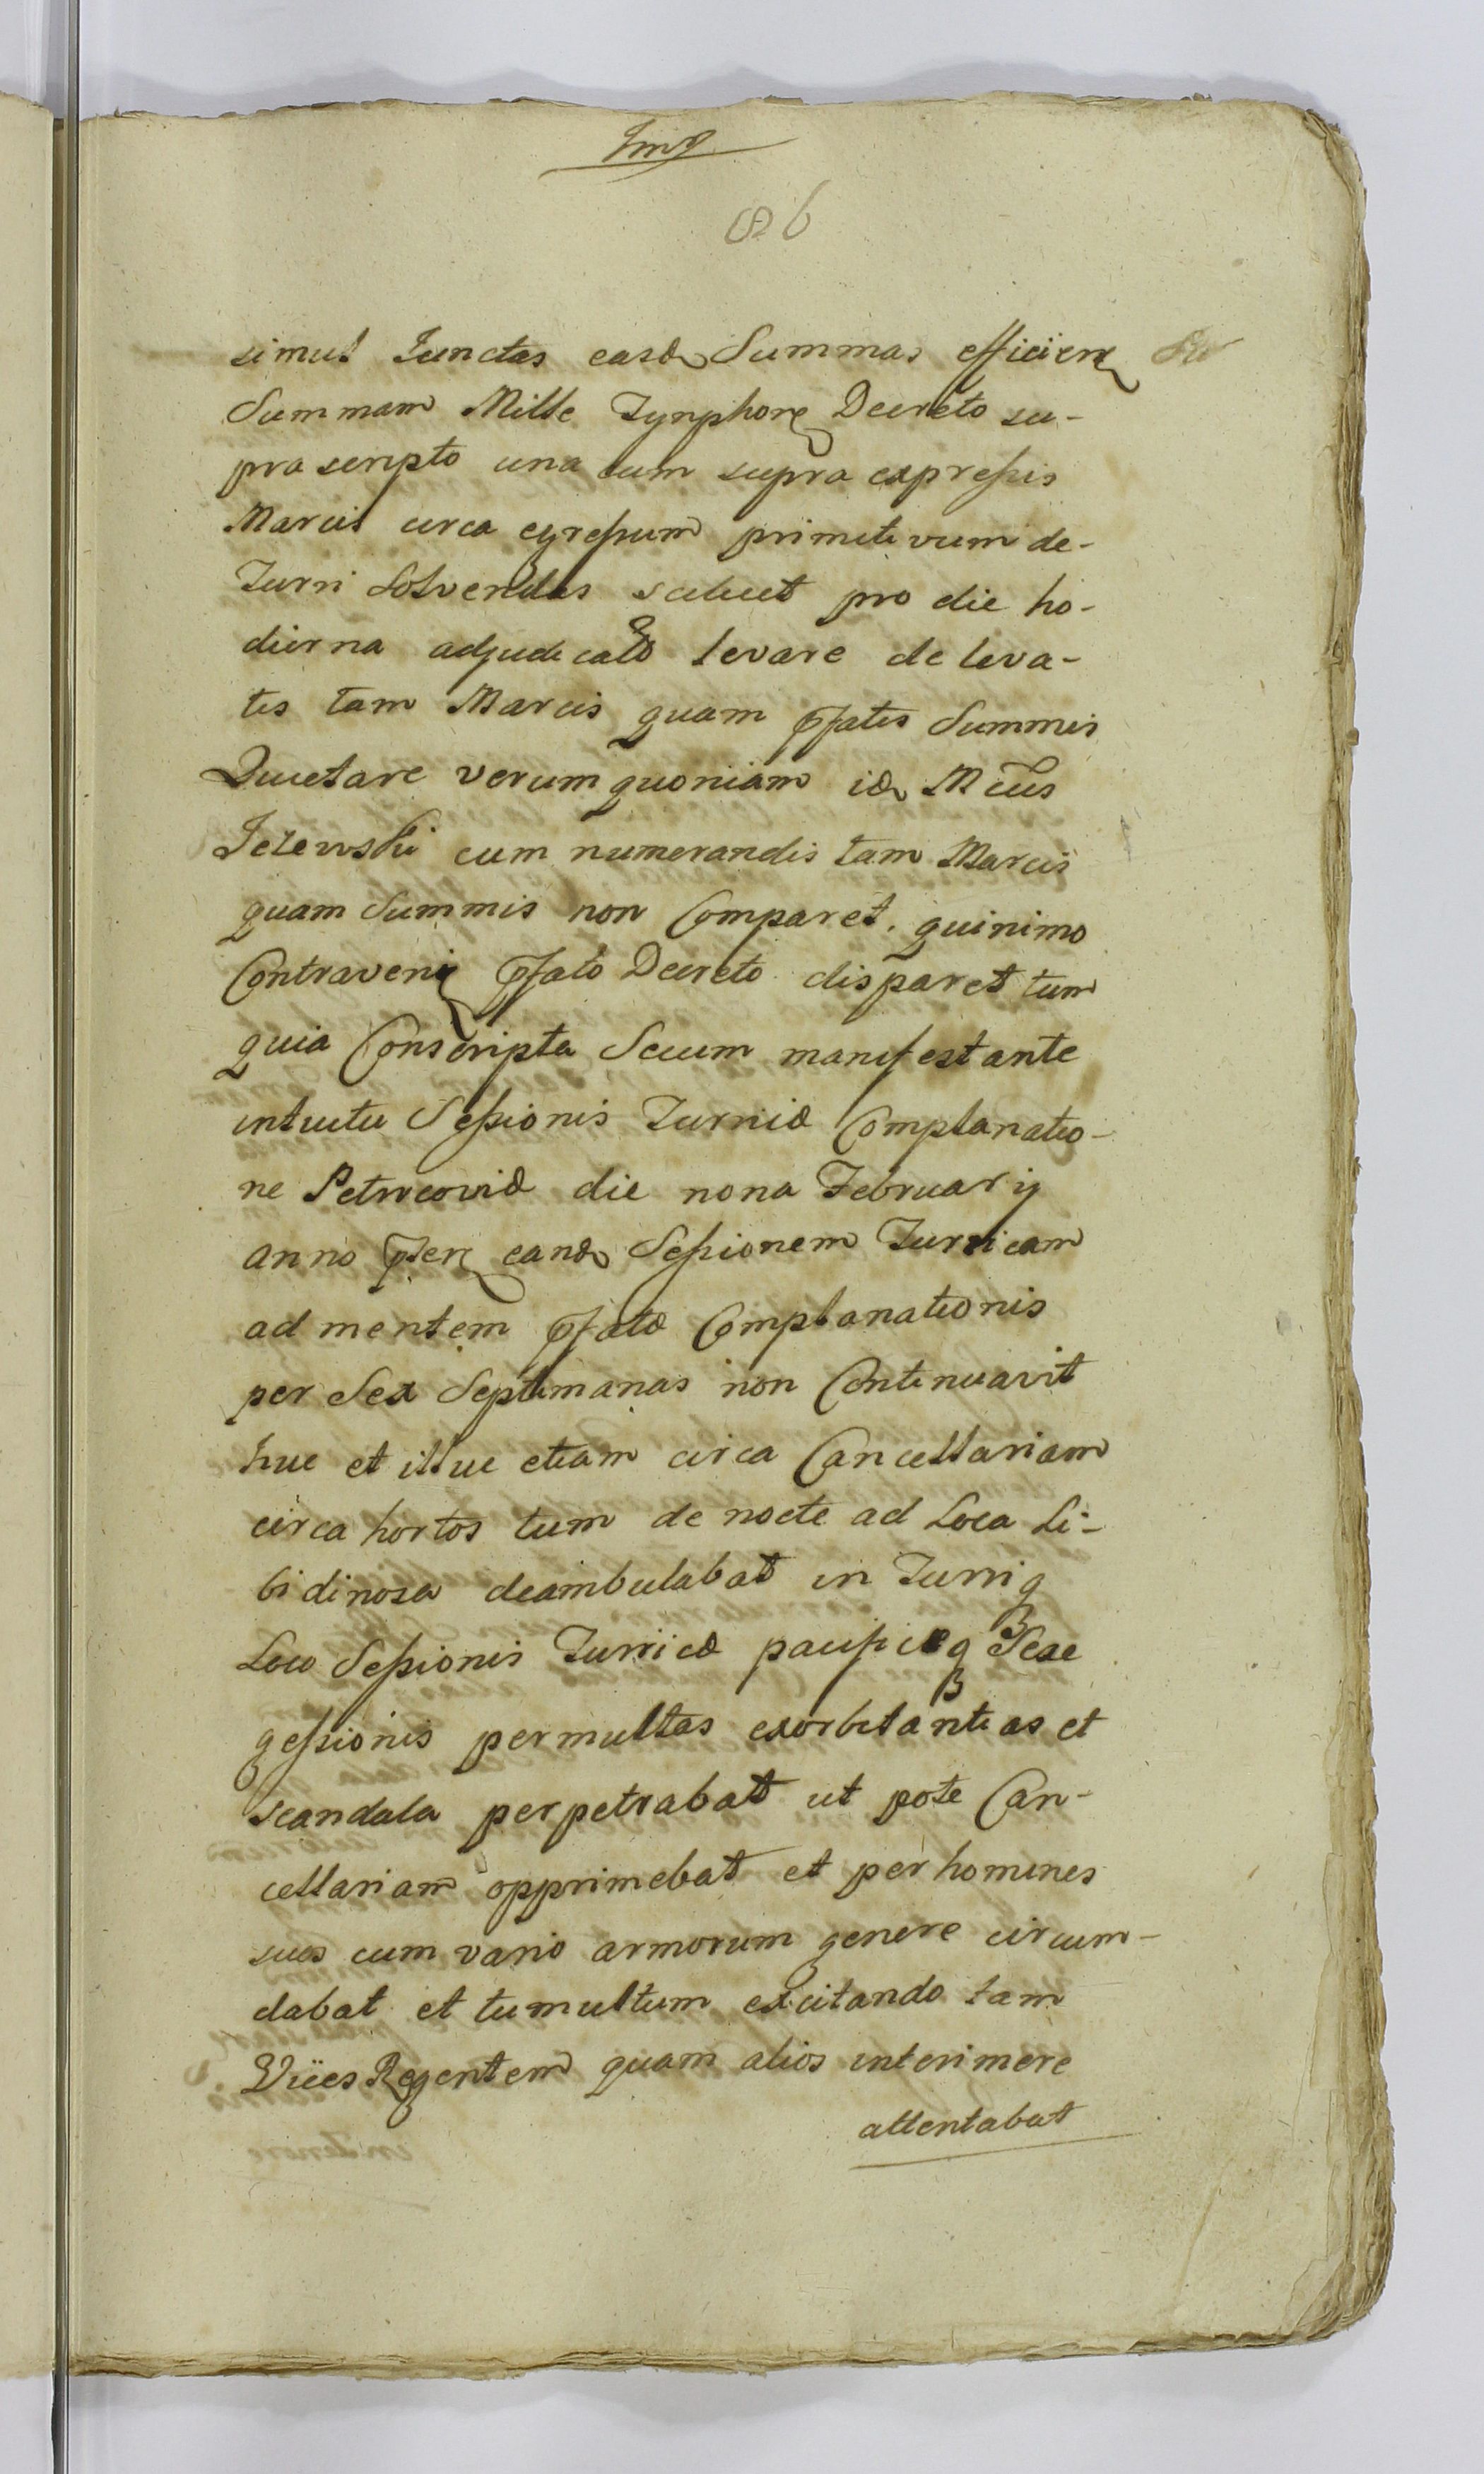 86
simul Junctas easd Summas efficien
Summam Mille Tynphor Decreto su-
prascripto una cum supra expreſsis
Marcis circa egreſsum primitivum de-
Turri Solvendas scilicet pro die ho-
dierna adjudicatas levare de leva-
tis tam Marcis quam pfatis Summis
Quietare verum quoniam id Mcus
Jezewski cum numerandis tam Marcis
quam Summis non Comparet. quinimo
Contraveni pfato Decreto disparet tum
quia Conscripta Secum manifestante
intuitu Seſsionis Turrid Complanatio-
ne Petricovid die nona Februarij
anno pter eand Seſsionem Turricam
ad mentem pfatæ Complanationis
per Sex Septimanas non Continuavit
huc et illuc etiam circa Cancellariam
circa hortos tum de nocte ad Loca Li-
bidinosa deambulabat in Turriq
Loco Seſsionis Turricæ pacificæq Seae
geſsionis permultas exorbitantias et
scandala perpetrabat ut pote Can-
cellariam opprimebat et per homines
suos cum vario armorum genere circum-
dabat et tumultum excitando tam
Vices Regentem quam alios interimere
attentabat